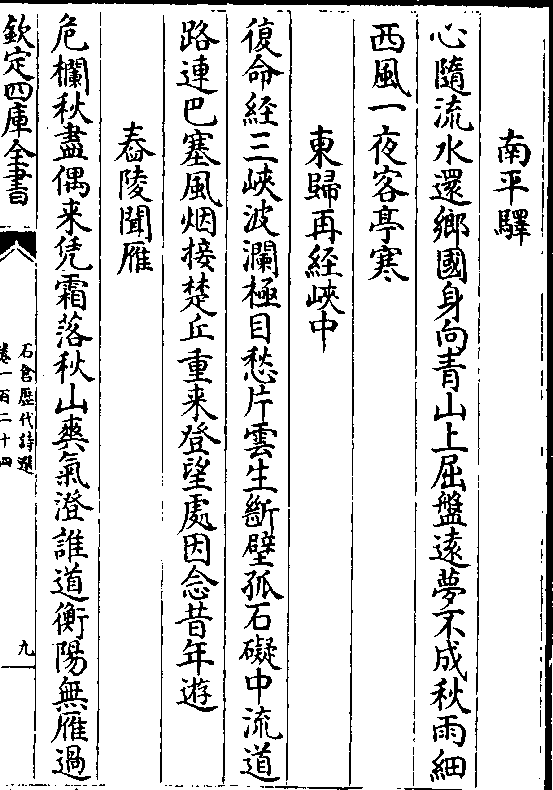 南平驛
心隨流水還鄉國身向青山上屈盤遠夢不成秋雨細
西風一夜客亭寒
東歸再經峽中
復命經三峽波瀾極目愁片雲生斷壁孤石礙中流道
路連巴塞風烟接楚丘重来登望處因念昔年遊
舂陵聞雁
危欄秋盡偶来凭霜落秋山爽氣澄誰道衡陽無雁過
欽定四庫全書
石倉歷代詩選
卷一百二十四
九